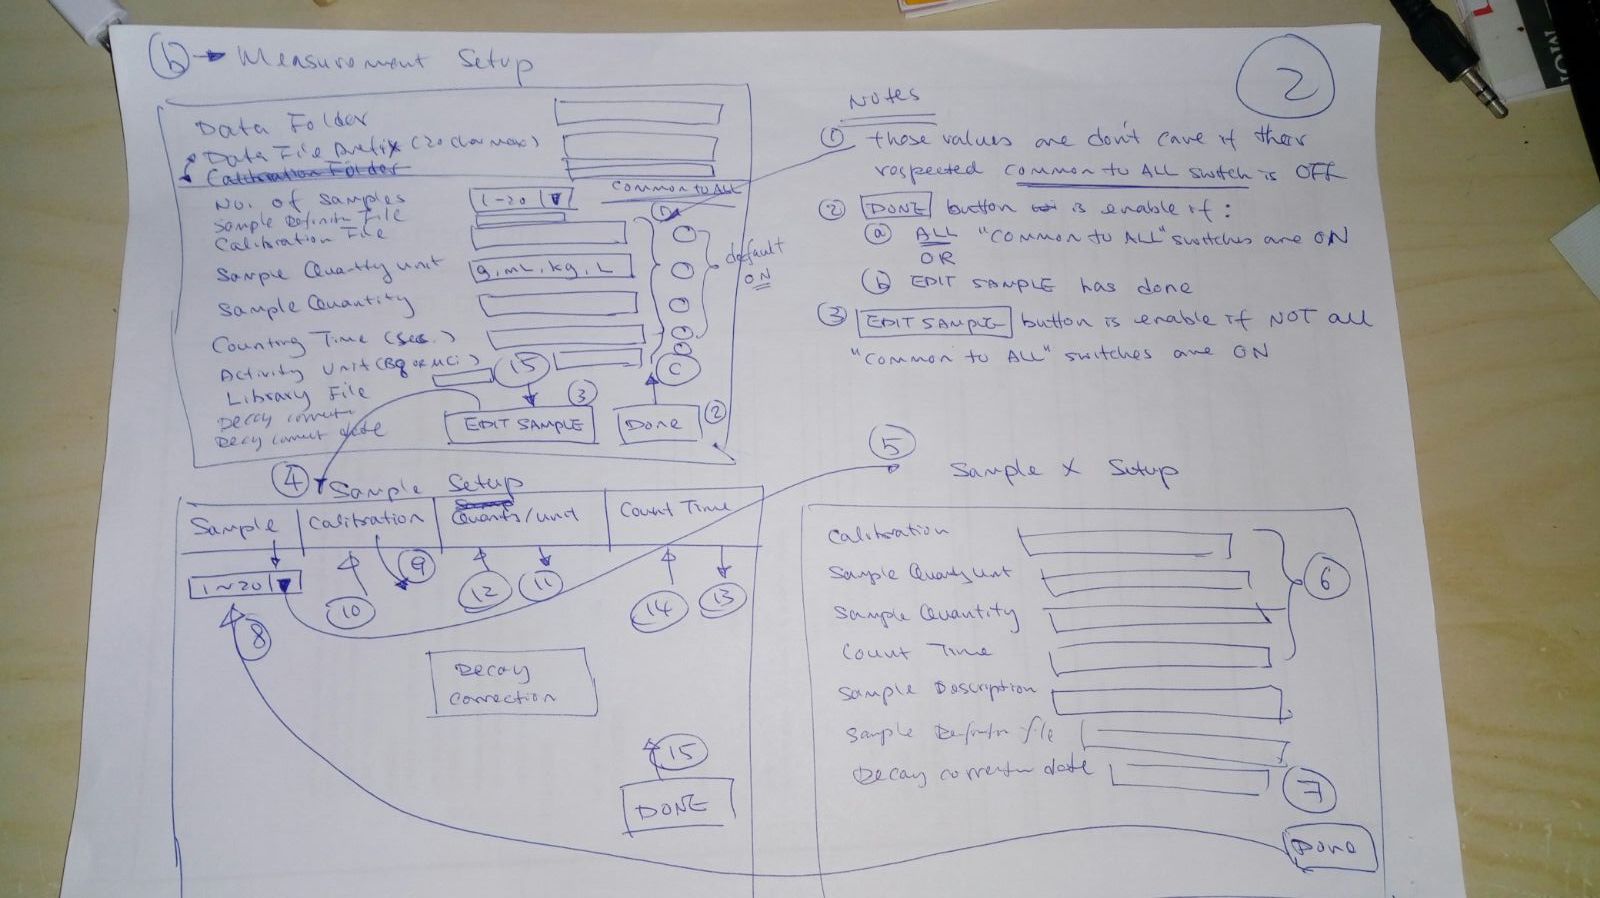 b → Measurement Setup
2
Data Folder
Data File Prefix (20 char max)
Calibration Folder
No. of Samples
1-20
Common to ALL
Sample Definitn File
Calibration File
1
Sample Quantity unit
g, mL, kg, L
default
ON
Sample Quantity
Counting Time (sec.)
Activity Unit (Bq or MCi)
15
C
Library File
3
Decay correctn
EDIT SAMPLE
Done
2
Decay correct date
NOTES
1 these values are don't care if their
respected common to ALL switch is OFF
2 DONE button is enable if:
a ALL "COMMON to ALL" switches are ON
OR
b EDIT SAMPLE has done
3 EDIT SAMPLE button is enable if NOT all
"COMMON to ALL" switches are ON
4 Sample Setup
Sample
Calibration
Quants/unit
Count Time
1~20
8
10
9
12
11
14
13
Decay
correction
15
DONE
5
Sample X Setup
Calibration
Sample Quanty unit
6
Sample Quantity
Count Time
Sample Description
Sample Definitn file
Decay correctn date
7
Done